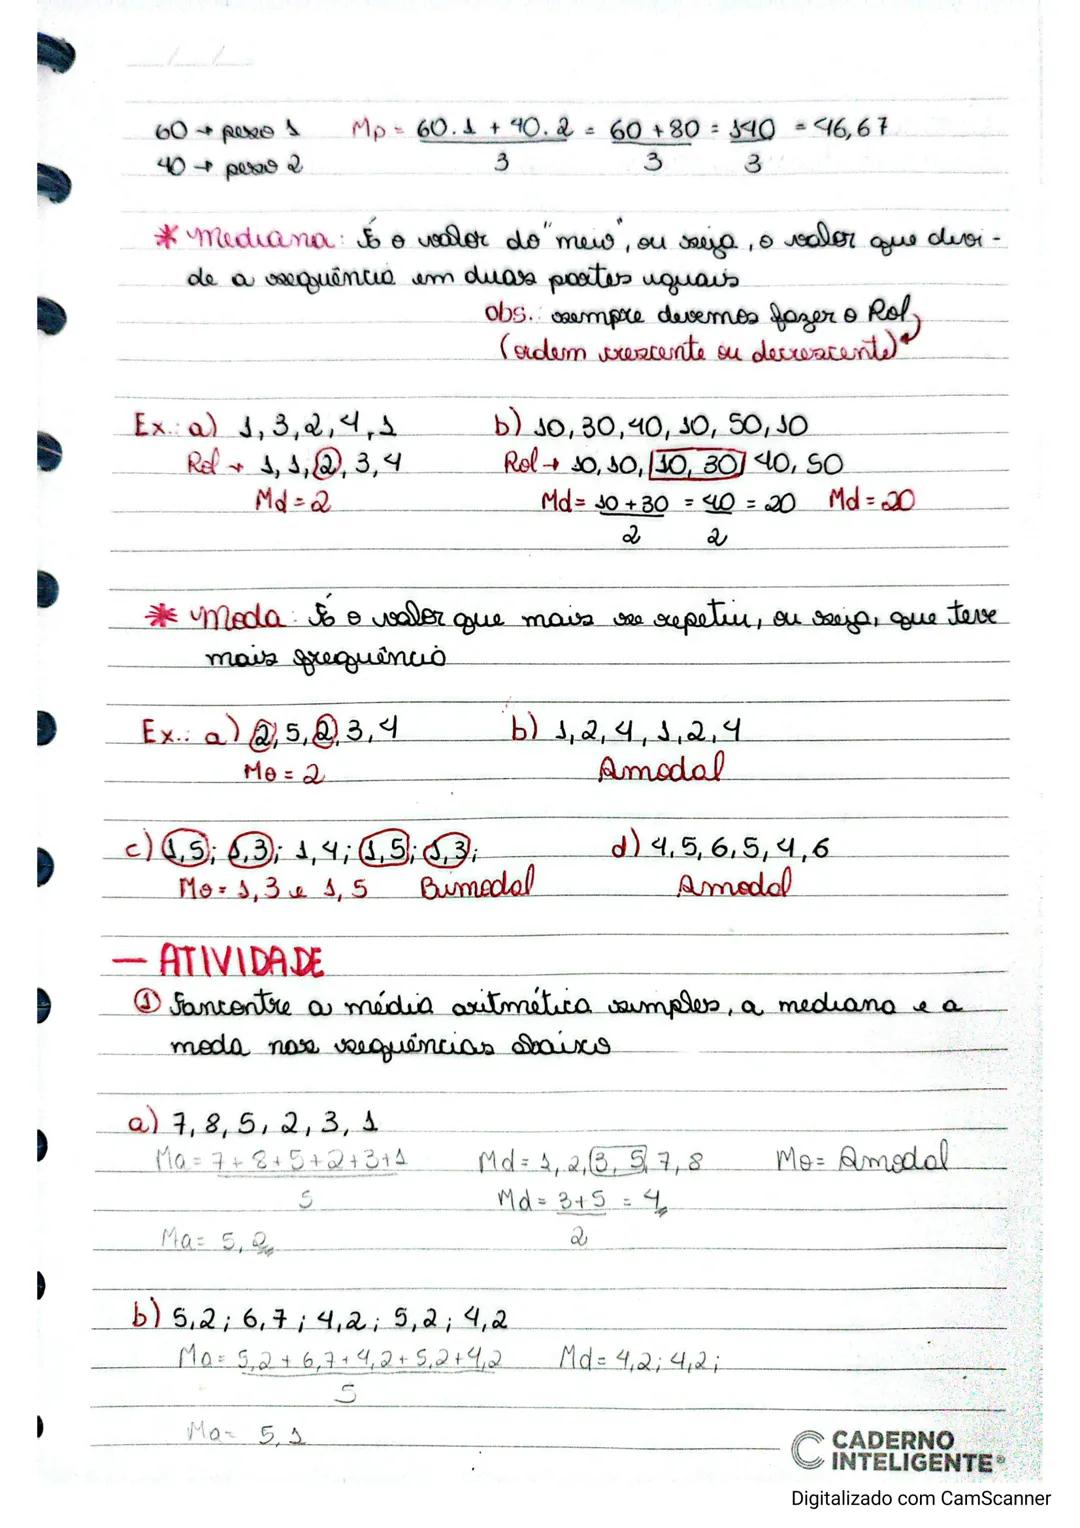 60 → peso 1 Mp = 60.1 + 40.2 = 60 + 80 = 140 = 46,67
40 → peso 2 3 3 3
* Mediana: É o valor do "meio", ou seja, o valor que divi-
de a sequência em duas partes iguais
obs.: sempre devemos fazer o Rol
(ordem crescente ou decrescente)
Ex.: a) 1, 3, 2, 4, 1 b) 10, 30, 40, 10, 50, 10
Rol → 1, 1, 2, 3, 4 Rol → 10, 10, 10, 30, 40, 50
Md = 2 Md = 10 + 30 = 40 = 20 Md = 20
2 2
* Moda: É o valor que mais se repetiu, ou seja, que teve
mais frequência
Ex.: a) 2, 5, 2, 3, 4 b) 1, 2, 4, 1, 2, 4
Mo = 2 Amodal
c) 1,5; 1,3; 1,4; 1,5; 1,3; d) 4, 5, 6, 5, 4, 6
Mo = 1,3 e 1,5 Bimodal Amodal
— ATIVIDADE
① Encontre a média aritmética simples, a mediana e a
moda nas sequências abaixo
a) 7, 8, 5, 2, 3, 1
Ma = 7 + 8 + 5 + 2 + 3 + 1 Md = 1, 2, 3, 5, 7, 8 Mo = Amodal
5 Md = 3 + 5 = 4
Ma = 5,2 2
b) 5,2; 6,7; 4,2; 5,2; 4,2
Ma = 5,2 + 6,7 + 4,2 + 5,2 + 4,2 Md = 4,2; 4,2;
5
Ma = 5,1
CADERNO
INTELIGENTE®
Digitalizado com CamScanner